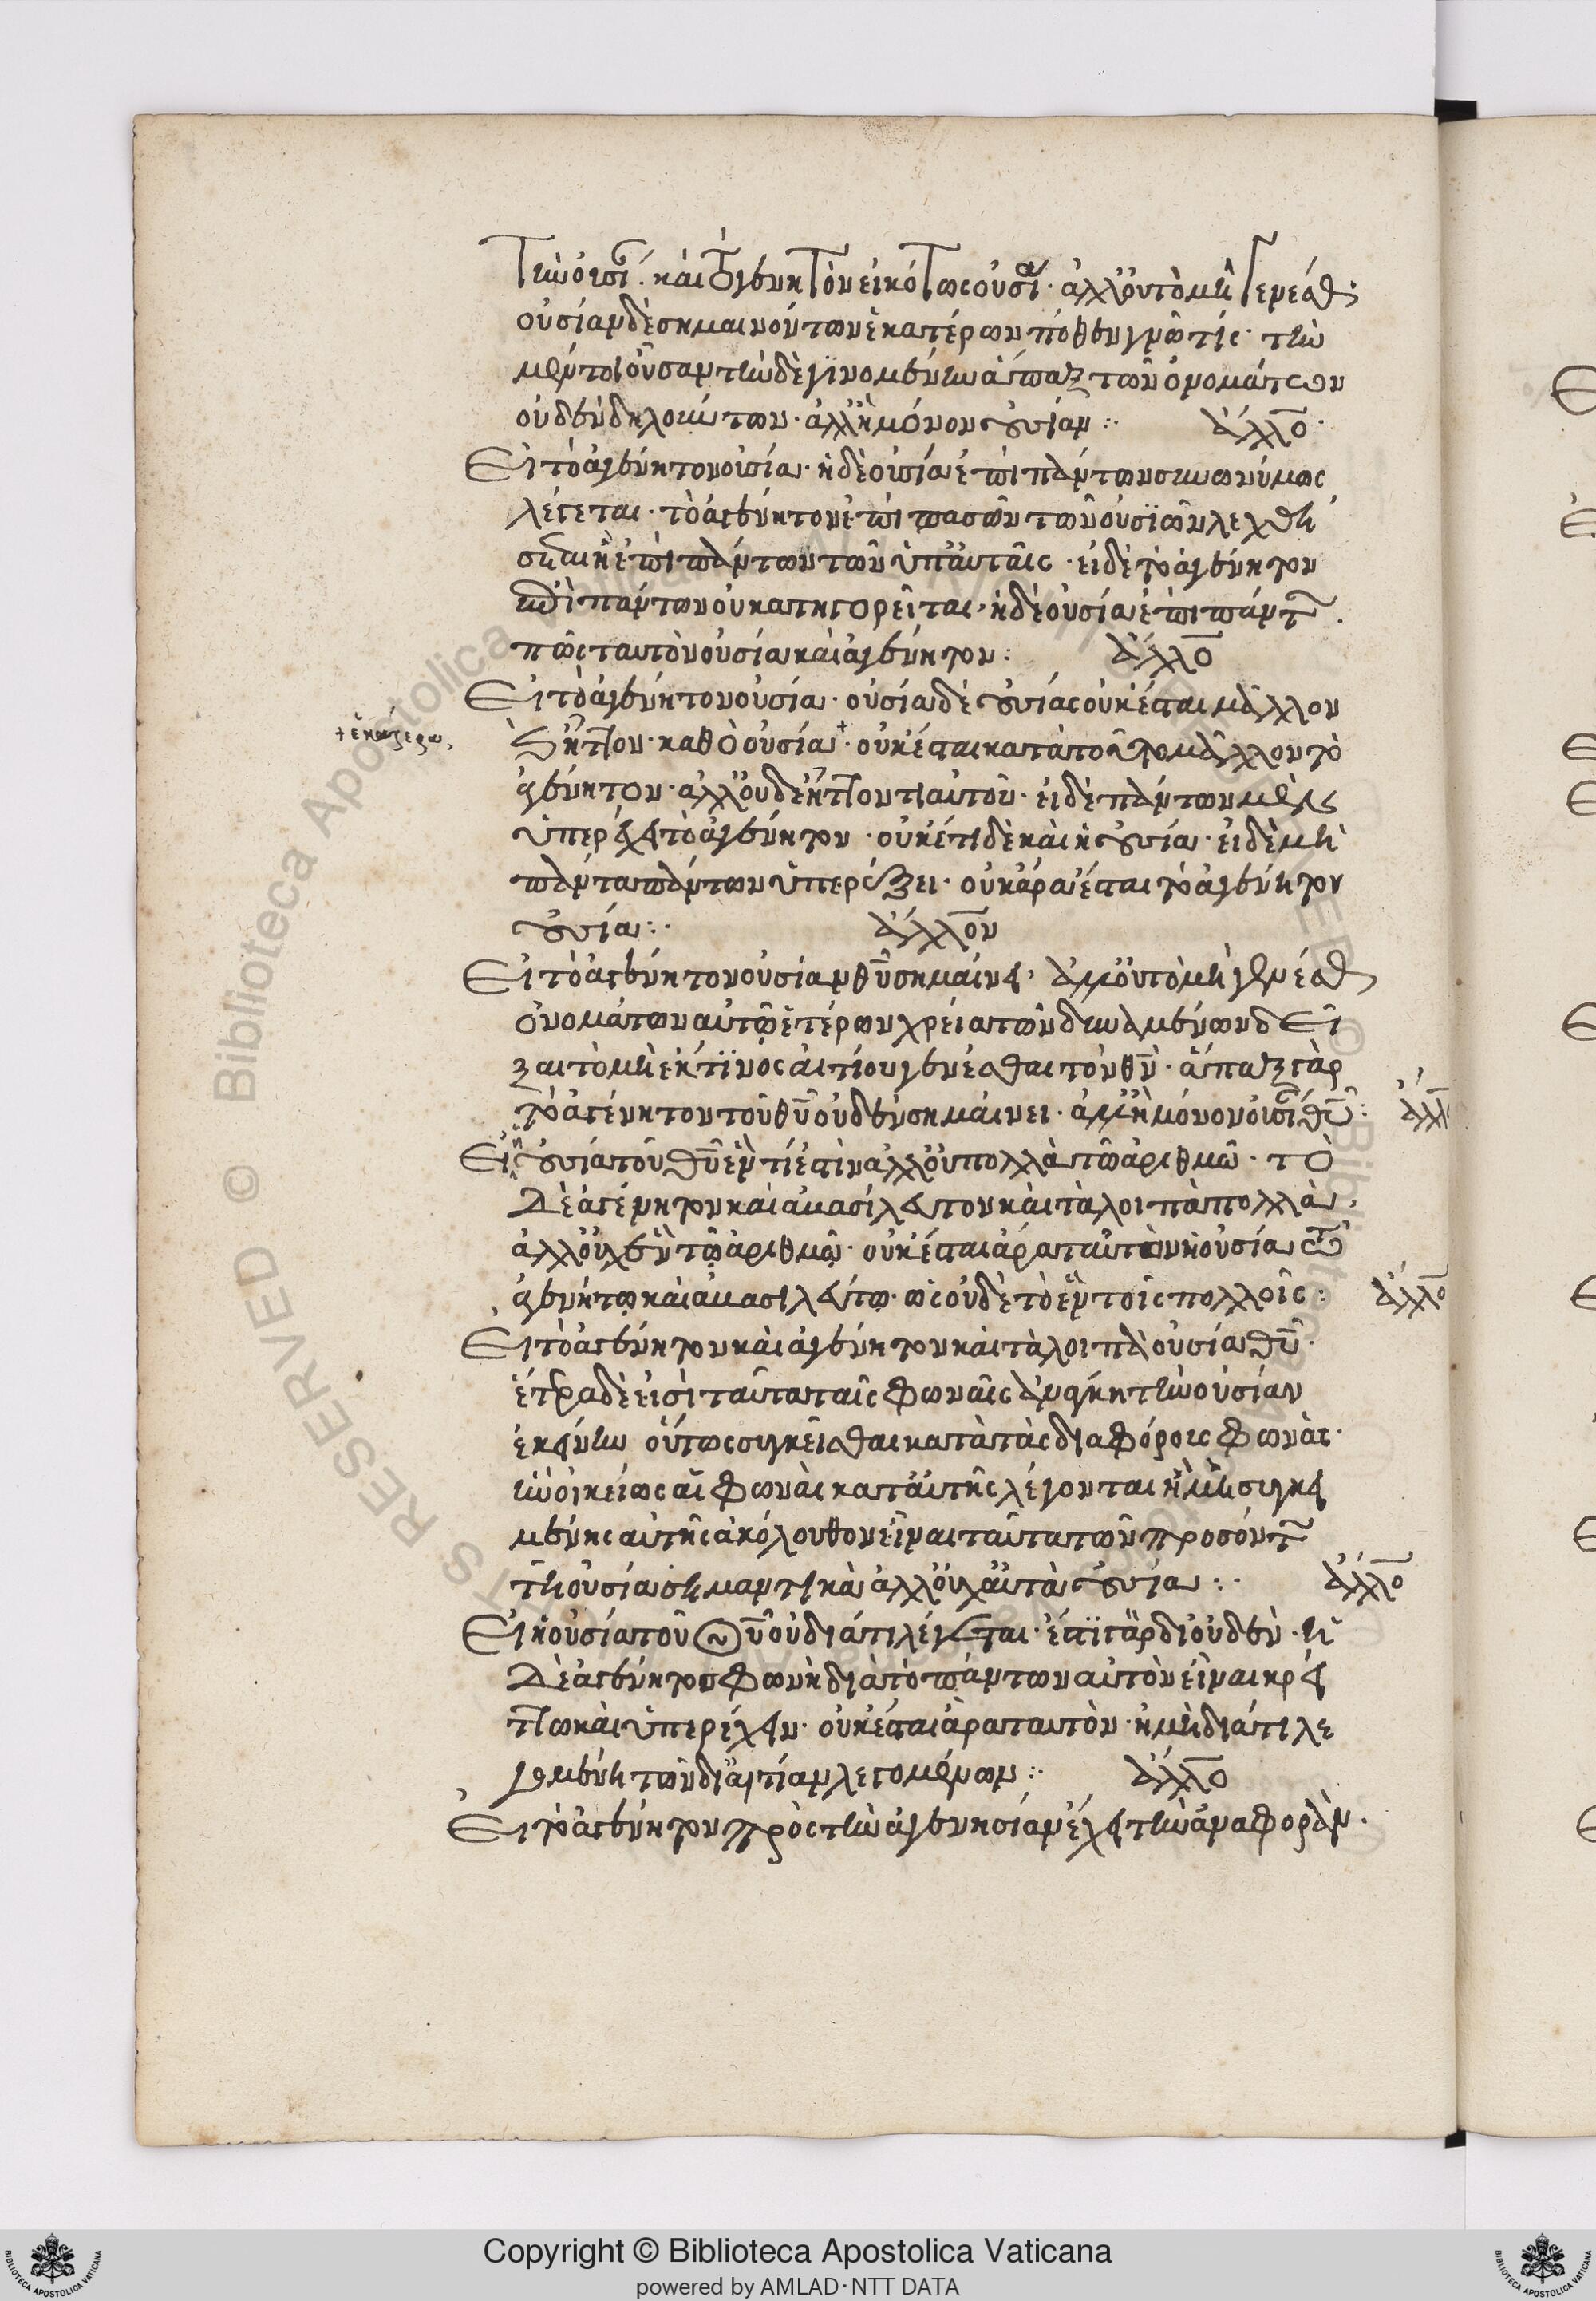 τὴν οὐσίαν. καὶ τὸ γεννητὸν εἰκότως οὐσία. ἀλλ' οὐ τὸ μὴ γενέσθαι.
οὐσίαν δὲ σημαινόντων ἑκατέρων πόθεν γνῶ τίς. τὴν
μέντοι οὖσαν τὴν δὲ γινομένην ἅπαξ τῶν ὀνομάτων
οὐδὲν δηλούντων. ἀλλ' ἢ μόνον οὐσίαν: ἄλλο.
Εἰ τὸ ἀγέννητον οὐσία. ἡ δὲ οὐσία ἐπὶ πάντων συνωνύμως
λέγεται. τὸ ἀγέννητον ἐπὶ πασῶν τῶν οὐσιῶν λεχθή
σεται ἢ ἐπὶ πάντων τῶν ὑπ' αὐταῖς. εἰ δὲ τὸ ἀγέννητον
ἐπὶ πάντων οὐ κατηγορεῖται, ἡ δὲ οὐσία ἐπὶ πάντων.
πῶς ταυτὸν οὐσία καὶ ἀγέννητον: ἄλλο
Εἰ τὸ ἀγέννητον οὐσία. οὐσία δὲ οὐσίας οὐκ ἔσται μᾶλλον
ἢ ἧττον. καθὸ οὐσία. οὐκ ἔσται κατὰ τοῦτο μᾶλλον τὸ
ἀγέννητον. ἀλλ' οὐδὲ ἧττόν τι αὐτοῦ. εἰ δὲ πάντων μὲν
ὑπερέχει τὸ ἀγέννητον. οὐκέτι δὲ καὶ ἡ οὐσία. εἰ δὲ μὴ
πάντα πάντων ὑπερέξει. οὐκ ἄρα ἔσται τὸ ἀγέννητον
οὐσία: ἄλλον
Εἰ τὸ ἀγέννητον οὐσίαν θῦ σημαίνει. ἀλλ' οὐ τὸ μὴ γενέσθαι
ὀνομάτων αὐτῷ ἑτέρων χρεία τῶν δυναμένων δεῖ
ξαι τὸ μὴ ἐκ τινος αἰτίου γενέσθαι τὸν θν. ἅπαξ γὰρ
τὸ ἀγέννητον τοῦ θυ οὐδὲν σημαίνει. ἀλλ' ἢ μόνον οὐσίαν θυ: ἄλλο
Εἰ ἡ οὐσία τοῦ θυ ἕν τί ἐστιν ἀλλ' οὐ πολλὰ τῷ ἀριθμῷ. τὸ
δὲ ἀγέννητον καὶ ἀβασίλευτον καὶ τὰ λοιπὰ πολλὰ,
ἀλλ' οὐχ ἓν τῷ ἀριθμῷ. οὐκ ἔσται ἄρα ταυτὸν ἡ οὐσία τῷ
ἀγεννήτῳ καὶ ἀβασιλεύτῳ. ὡς οὐδὲ τὸ ἓν τοῖς πολλοῖς: ἄλλο
Εἰ τὸ ἀγέννητον καὶ ἀγέννητον καὶ τὰ λοιπὰ οὐσία θυ.
ἕτερα δὲ εἰσὶ ταῦτα ταῖς φωναῖς ἀνάγκη τὴν οὐσίαν
ἐκείνην οὕτως συγκεῖσθαι κατὰ τὰς διαφόροις φωνὰς.
ἵν' οἰκείως αἱ φωναὶ κατ' αὐτῆς λέγονται ἢ μὴ συγκει
μένης αὐτῆς ἀκόλουθον εἶναι ταῦτα τῶν προσόντων
τῇ οὐσίᾳ σημαντικὰ ἀλλ' οὐχ αὐτὰ οὐσία: ἄλλο
Εἰ ἡ οὐσία τοῦ θυ οὐ διά τι λέγεται. ἔστι γὰρ δι' οὐδὲν. ἡ
δὲ ἀγέννητος φωνὴ διὰ τὸ πάντων αὐτὸν εἶναι κρεί
ττω καὶ ὑπερέχειν. οὐκ ἔσται ἄρα ταυτὸν. ἡ μὴ διά τι λε
γομένη τῶν δι' αἰτίαν λεγομένων: ἄλλο
Εἰ τὸ ἀγέννητον πρὸς τὴν ἀγεννησίαν ἔχει τὴν ἀναφοράν.
Copyright © Biblioteca Apostolica Vaticana
powered by AMLAD·NTT DATA